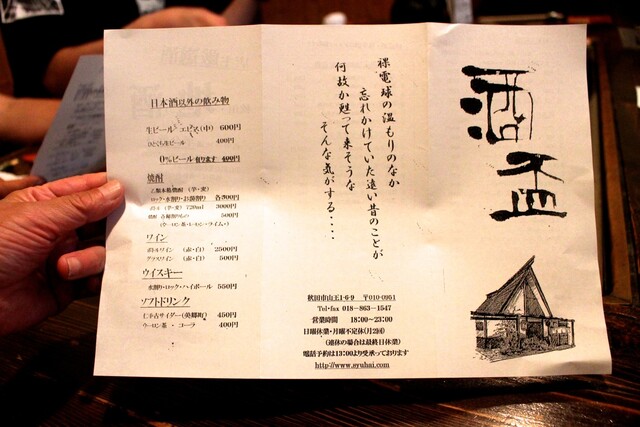 酒盃
裸電球の温もりのなか
忘れかけていた遠い昔のことが
何故か甦って来そうな
そんな気がする・・・・
秋田市山王1-6-9 〒010-0951
Tel・fax 018-863-1547
営業時間 18:00~23:00
日曜休業・月曜不定休(月2回)
(連休の場合は最終日休業)
電話予約は13:00より受承っております
http://www.syuhai.com
日本酒以外の飲み物
生ビール エビス(中) 600円
ひとくち生ビール 400円
0%ビール 有ります 400円
焼酎
乙類本格焼酎 (芋・麦)
ロック・水割り・お湯割り 各500円
ボトル (芋・麦) 720ml 3000円
焼酎 各種割りもの 500円
(ウーロン茶・レモン・ライム)
ワイン
ボトルワイン (赤・白) 2500円
グラスワイン (赤・白) 500円
ウイスキー
水割り・ロック・ハイボール 550円
ソフトドリンク
仁手古サイダー(美郷町) 450円
ウーロン茶・コーラ 400円